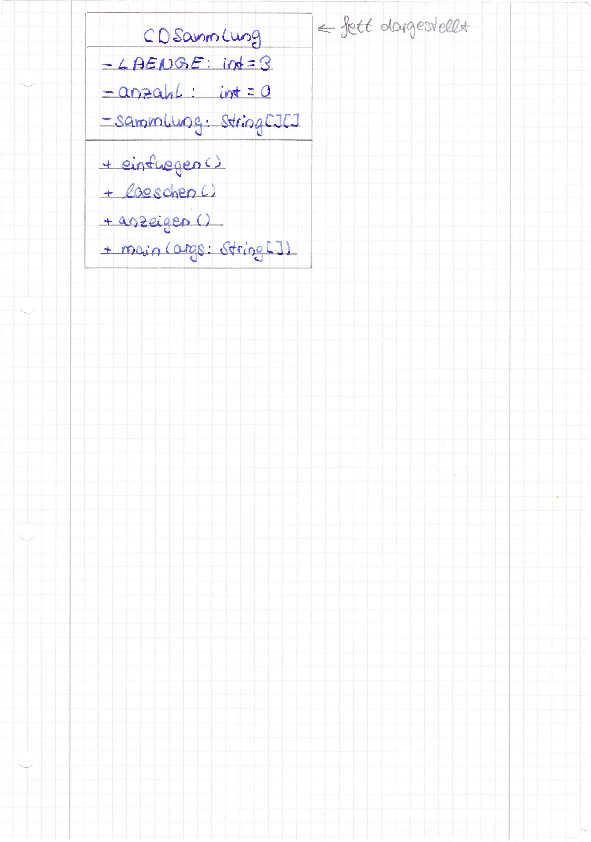 CDSammlung
← fett dargestellt
- LAENGE: int = 3
- anzahl: int = 0
- sammlung: String[][]
+ einfuegen()
+ loeschen()
+ anzeigen()
+ main(args: String[])